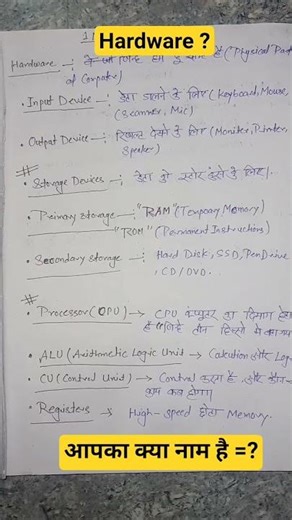 Hardware ?
Hardware
("Physical Part
of Computer)
• Input Device — : डेटा डालने के लिए (Keyboard, Mouse,
(Scanner, Mic)
• Output Device — : रिजल्ट देखने के लिए (Moniter, Printer,
Speaker)
#
• Storage Devices — : डेटा को स्टोर
के लिए।
• Primary Storage — "RAM" (Temporary Memory)
"ROM" (Permanent Instructions)
• Secondary Storage — Hard Disk, SSD, PenDrive,
CD/DVD.
#
• Processor (CPU) → CPU कंप्यूटर का दिमाग
तीन हिस्सों में
• ALU (Arithmetic Logic Unit → और
• CU (Control Unit) → Control करता है और कौन
कब होगा।
• Registers → High-speed छोटा Memory.
आपका क्या नाम है =?